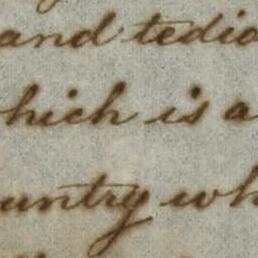 and tedio
hich is a
untry wh